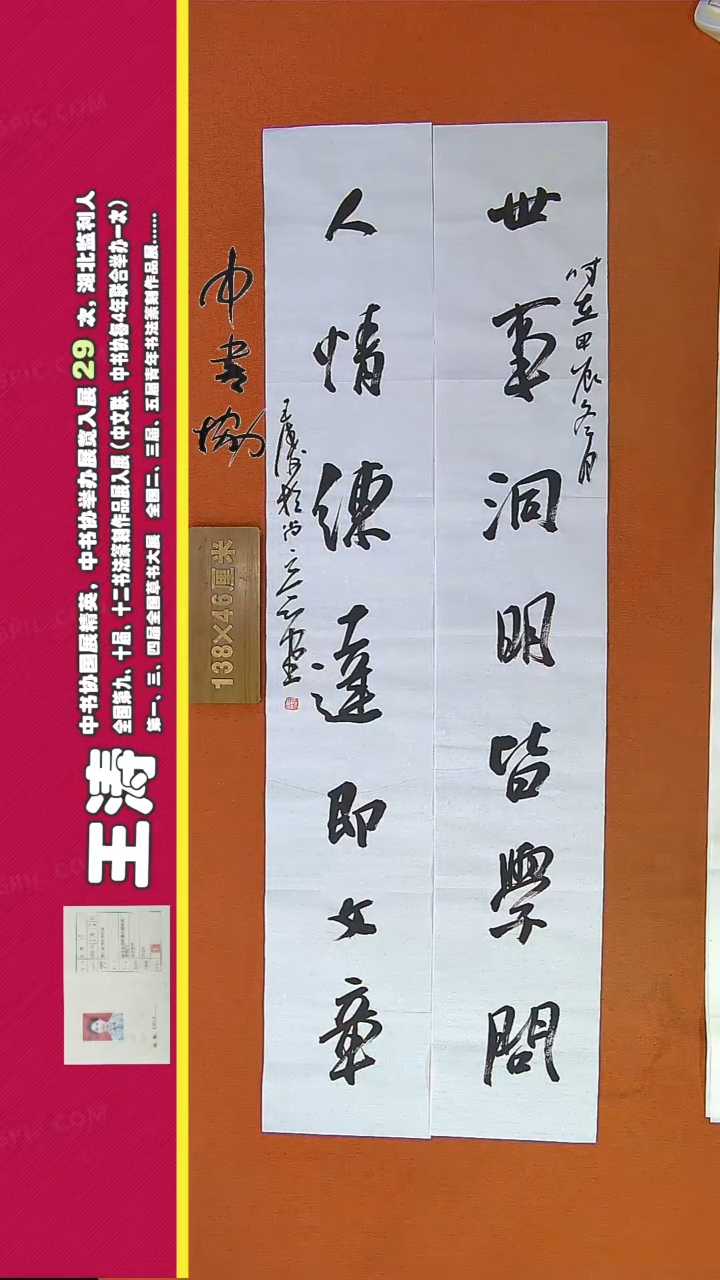 王涛
中书协国展精英，中书协举办展览入展 29 次，湖北监利人
全国第九、十届、十二书法篆刻作品展入展（中文联、中书协每4年联合举办一次）
第一、三、四届全国草书大展 全国二、三届、五届青年书法篆刻作品展......
中书协
138×46厘米
世事洞明皆學問
時在甲辰冬月
人情練達即文章